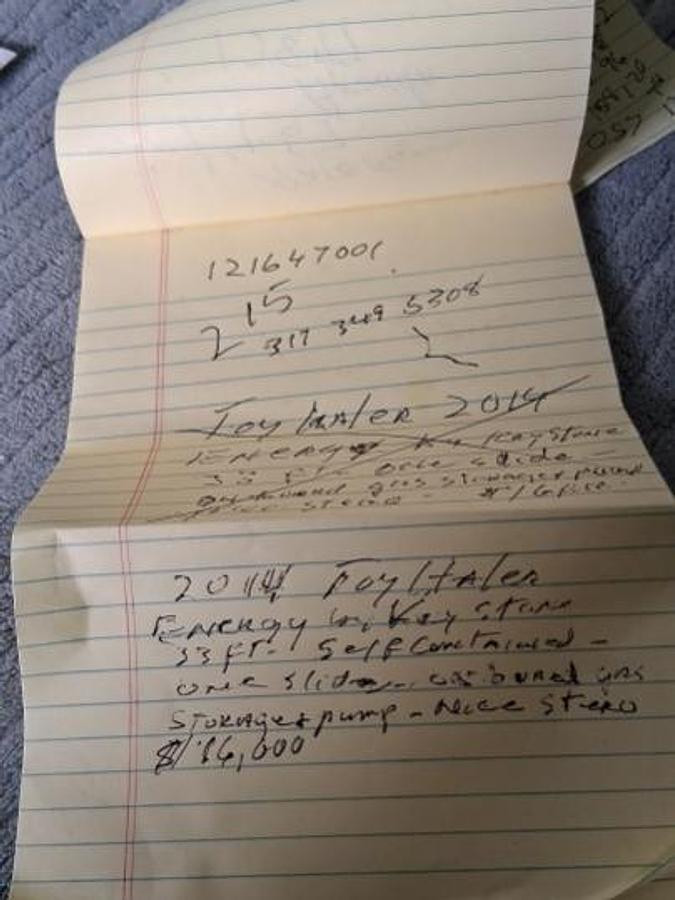 121647001
15
2 317 349 5308
Toy Haler 2014
ENERGY Keystone
33 FT. one slide -
gas storage pump
stereo -
2014 Toy Haler
ENERGY by Key Stone
33 FT. Self Contained -
one slide - on board gas
STORAGE + pump - Nice Stereo
$16,000